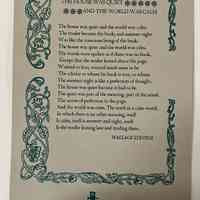 THE HOUSE WAS QUIET
AND THE WORLD WAS CALM
The house was quiet and the world was calm.
The reader became the book; and summer night
Was like the conscious being of the book.
The house was quiet and the world was calm.
The words were spoken as if there was no book,
Except that the reader leaned above the page,
Wanted to lean, wanted much most to be
The scholar to whom his book is true, to whom
The summer night is like a perfection of thought.
The house was quiet because it had to be.
The quiet was part of the meaning, part of the mind:
The access of perfection to the page.
And the world was calm. The truth in a calm world,
In which there is no other meaning, itself
Is calm, itself is summer and night, itself
Is the reader leaning late and reading there.
WALLACE STEVENS